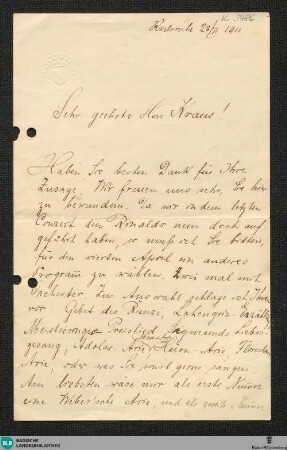 K 3486
Karlsruhe 28/II 1911
Sehr geehrter Herr Kraus!
Haben Sie besten Dank für Ihre
Zusage. Wir freuen uns sehr, Sie hier
zu bewundern. Da wir in dem letzten
Concert den Rinaldo nun doch auf-
geführt haben, so muß ich Sie bitten,
für den vierten April ein anderes
Program zu wählen. Zwei mal mit
Orchester. Zur Auswahl schlage ich Ihnen
vor Gebet des Rienzi, Lohengrin-Erzählg
Meistersinger Preislied, Siegmunds Liebes-
gesang, Adolar Arie, Hüon Arie, Florestan
Arie, oder was Sie sonst gerne sängen.
Am liebsten wäre mir als erste Numer
eine Weber'sche Arie, und als zweite Numer
BLB BADISCHE
LANDESBIBLIOTHEK
Baden-Württemberg